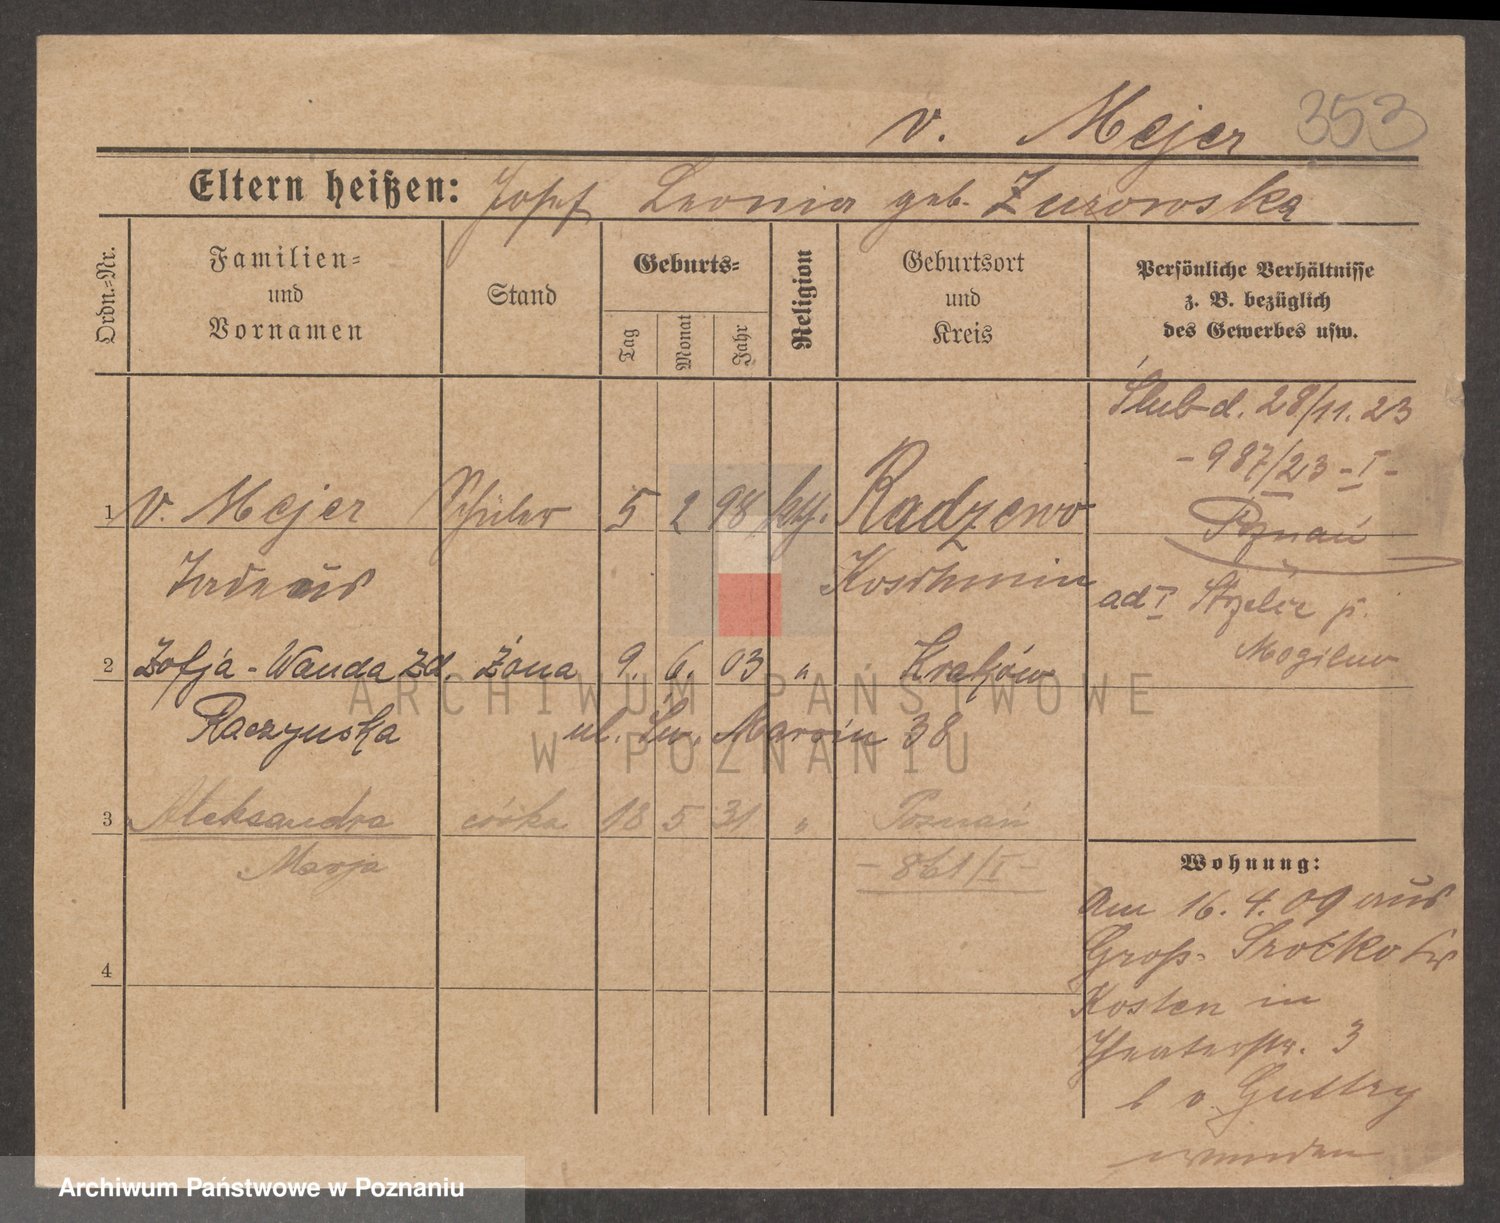 353
v. Mejer
Eltern heißen: Josef Leonia geb. Żurowska
Ordn.=Nr.
Familien=
und
Vornamen
Stand
Geburts=
Tag
Monat
Jahr
Religion
Geburtsort
und
Kreis
Persönliche Verhältnisse
z. B. bezüglich
des Gewerbes usw.
Ślub d. 28/11. 23
- 987/23 - I -
Poznań
ad I Strzelce p.
Mogilno
1 v. Mejer Schüler 5 2 98 kth. Radzewo
Tadeus Koschmin
2 Zofja - Wanda zd. żona 9. 6. 03 " Kraków
Raczyńska ul. Św. Marcin 38
3 Aleksandra córka 18 5 31 " Poznań
Marja - 861/I -
4
Wohnung:
Am 16. 4. 09 aus
Groß- Srocko Kr
Kosten in
Theaterstr. 3
b v Guttry
ARCHIWUM PAŃSTWOWE
W POZNANIU
Archiwum Państwowe w Poznaniu